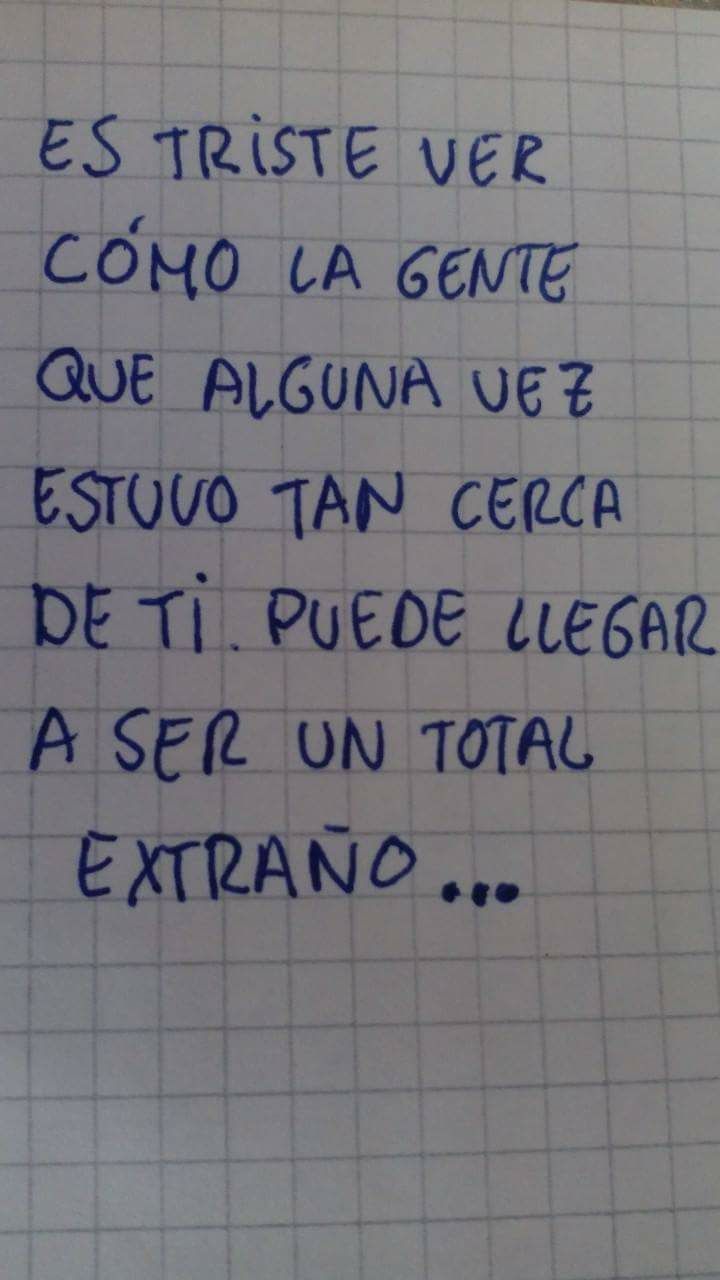 ES TRISTE VER
CÓMO LA GENTE
QUE ALGUNA VEZ
ESTUVO TAN CERCA
DE TI. PUEDE LLEGAR
A SER UN TOTAL
EXTRAÑO...